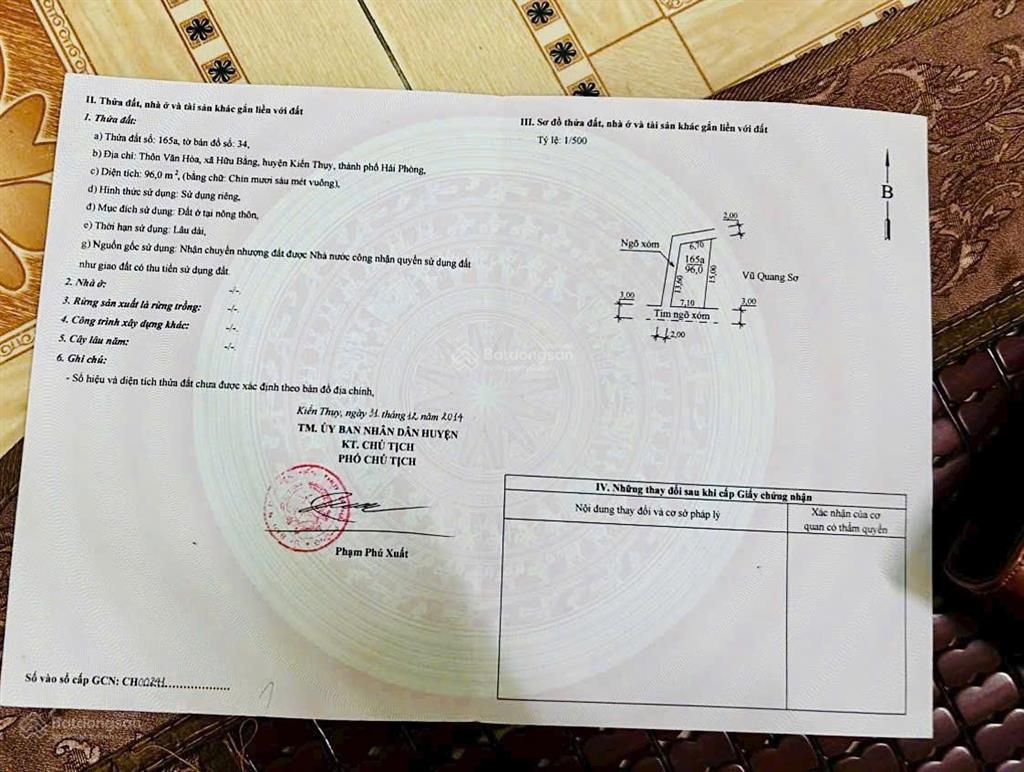 II. Thửa đất, nhà ở và tài sản khác gắn liền với đất
1. Thửa đất:
a) Thửa đất số: 165a, tờ bản đồ số: 34,
b) Địa chỉ: Thôn Văn Hòa, xã Hữu Bằng, huyện Kiến Thụy, thành phố Hải Phòng,
c) Diện tích: 96,0 m², (bằng chữ: Chín mươi sáu mét vuông),
d) Hình thức sử dụng: Sử dụng riêng,
đ) Mục đích sử dụng: Đất ở tại nông thôn,
e) Thời hạn sử dụng: Lâu dài,
g) Nguồn gốc sử dụng: Nhận chuyển nhượng đất được Nhà nước công nhận quyền sử dụng đất
như giao đất có thu tiền sử dụng đất.
2. Nhà ở: -/-
3. Rừng sản xuất là rừng trồng: -/-
4. Công trình xây dựng khác: -/-
5. Cây lâu năm: -/-
6. Ghi chú:
- Số hiệu và diện tích thửa đất chưa được xác định theo bản đồ địa chính,
Kiến Thụy, ngày 31 tháng 12 năm 2014
TM. ỦY BAN NHÂN DÂN HUYỆN
KT. CHỦ TỊCH
PHÓ CHỦ TỊCH
Phạm Phú Xuất
Số vào sổ cấp GCN: CH
III. Sơ đồ thửa đất, nhà ở và tài sản khác gắn liền với đất
Tỷ lệ: 1/500
B
2,00
Ngõ xóm
6,70
165a
96,0
13,60
15,00
Vũ Quang Sơ
3,00
7,10
3,00
Tim ngõ xóm
2,00
IV. Những thay đổi sau khi cấp Giấy chứng nhận
Nội dung thay đổi và cơ sở pháp lý
Xác nhận của cơ
quan có thẩm quyền
Batdongsan
Batdongsan